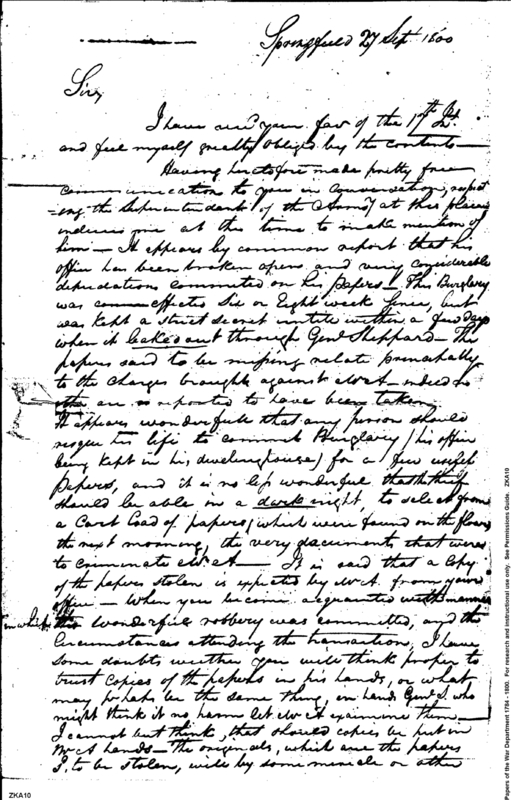 Springfield 27 Sept 1800
Sir,
I have rec'd your fav of the 17th
and feel myself greatly obliged by the contents—
Having heretofore made pretty free
communication to you in conversation, respect
=ing the Superintendent of the Armoy at this place
induces me at this time to make mention of
him— It appears by common report that his
office has been broken open and very considerable
depredations committed on his papers— This Burglary
was effected Six or Eight week since, but
was kept a strict secret untill within a few days
when it leaked out through Genl Sheppard— The
papers said to be missing relate principally
to the charges brought against Mr A— indeed no
other are reported to have been taken
It appears wonderfull that any person should
risque his life to commit Burglary (his office
being kept in his dwelling house) for a few useful
papers, and it is no less wonderful that the thief
should be able in a dark night, to select from
a Cart Load of papers (which were found on the floor
the next morning, the very documents that were
to criminate Mr A— It is said that a Copy
of the papers stolen is expected by Mr A from your
office— When you become acquainted with the manner
in which this wonderful robbery was committed, and the
Circumstances attending the transaction, I have
some doubts whether you will think proper to
trust Copies of the papers in his hands, or what
may perhaps be the same thing, in hands Genl S. who
might think it no harm let Mr A examine them—
I cannot but think, that should copies be put in
Mr A hands— The originals, which are the papers
S. to be stolen, will by some miracle or other
ZKA10
Papers of the War Department 1784 - 1800. For research and instructional use only. See Permissions Guide. ZKA10